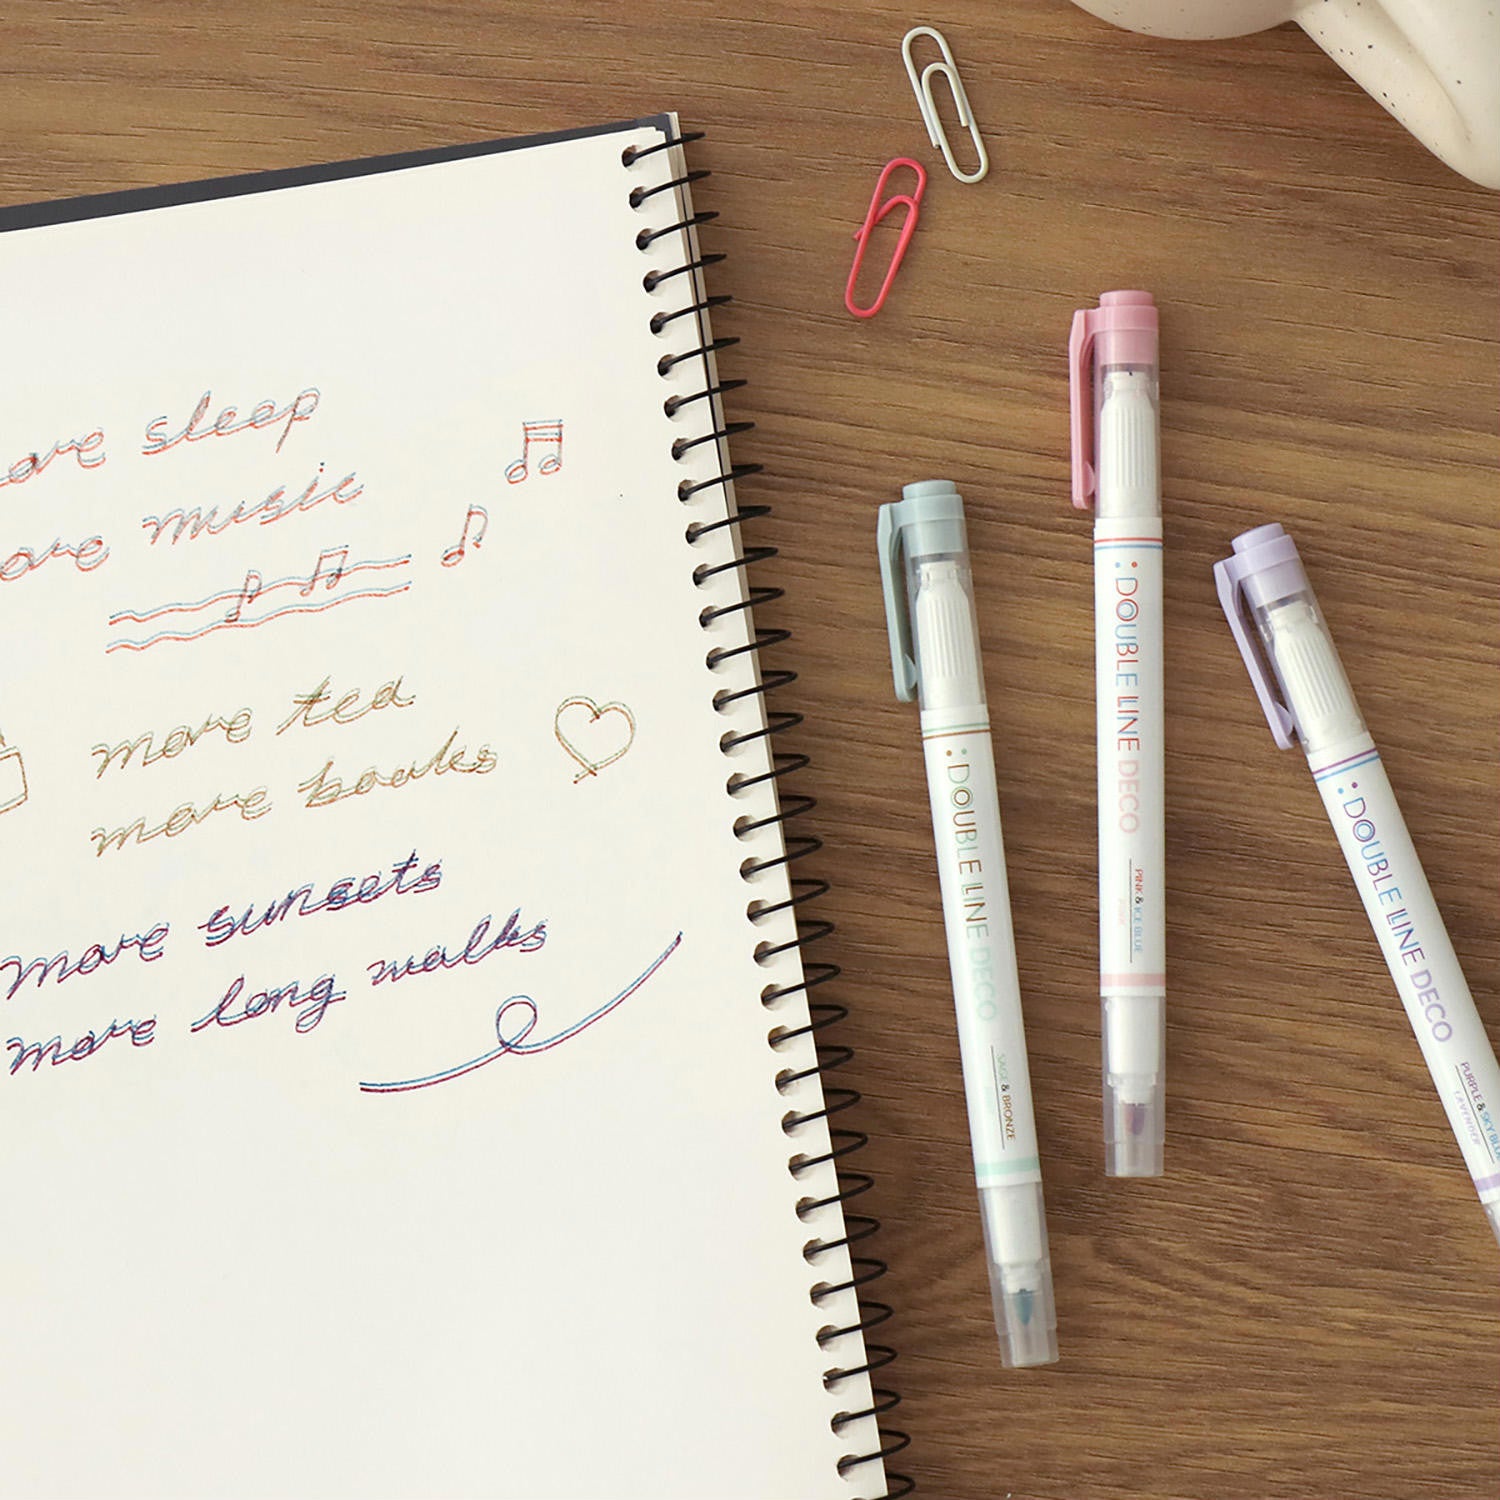 ore sleep
ore music
more tea
more books
more sunsets
more long walks
DOUBLE LINE DECO
SAGE & BRONZE
DOUBLE LINE DECO
PINK & ICE BLUE
DOUBLE LINE DECO
PURPLE & SKY BLUE
LAVENDER